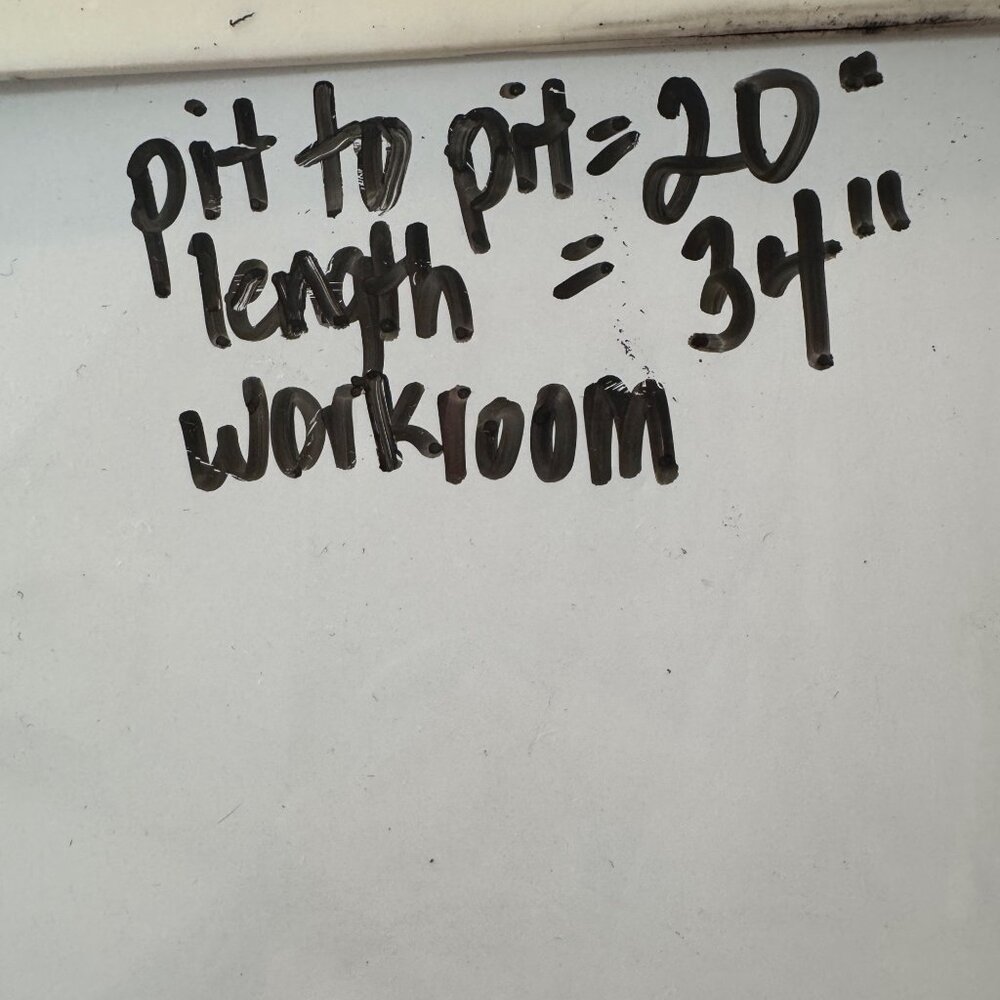 pit to pit = 20"
length = 34"
workroom